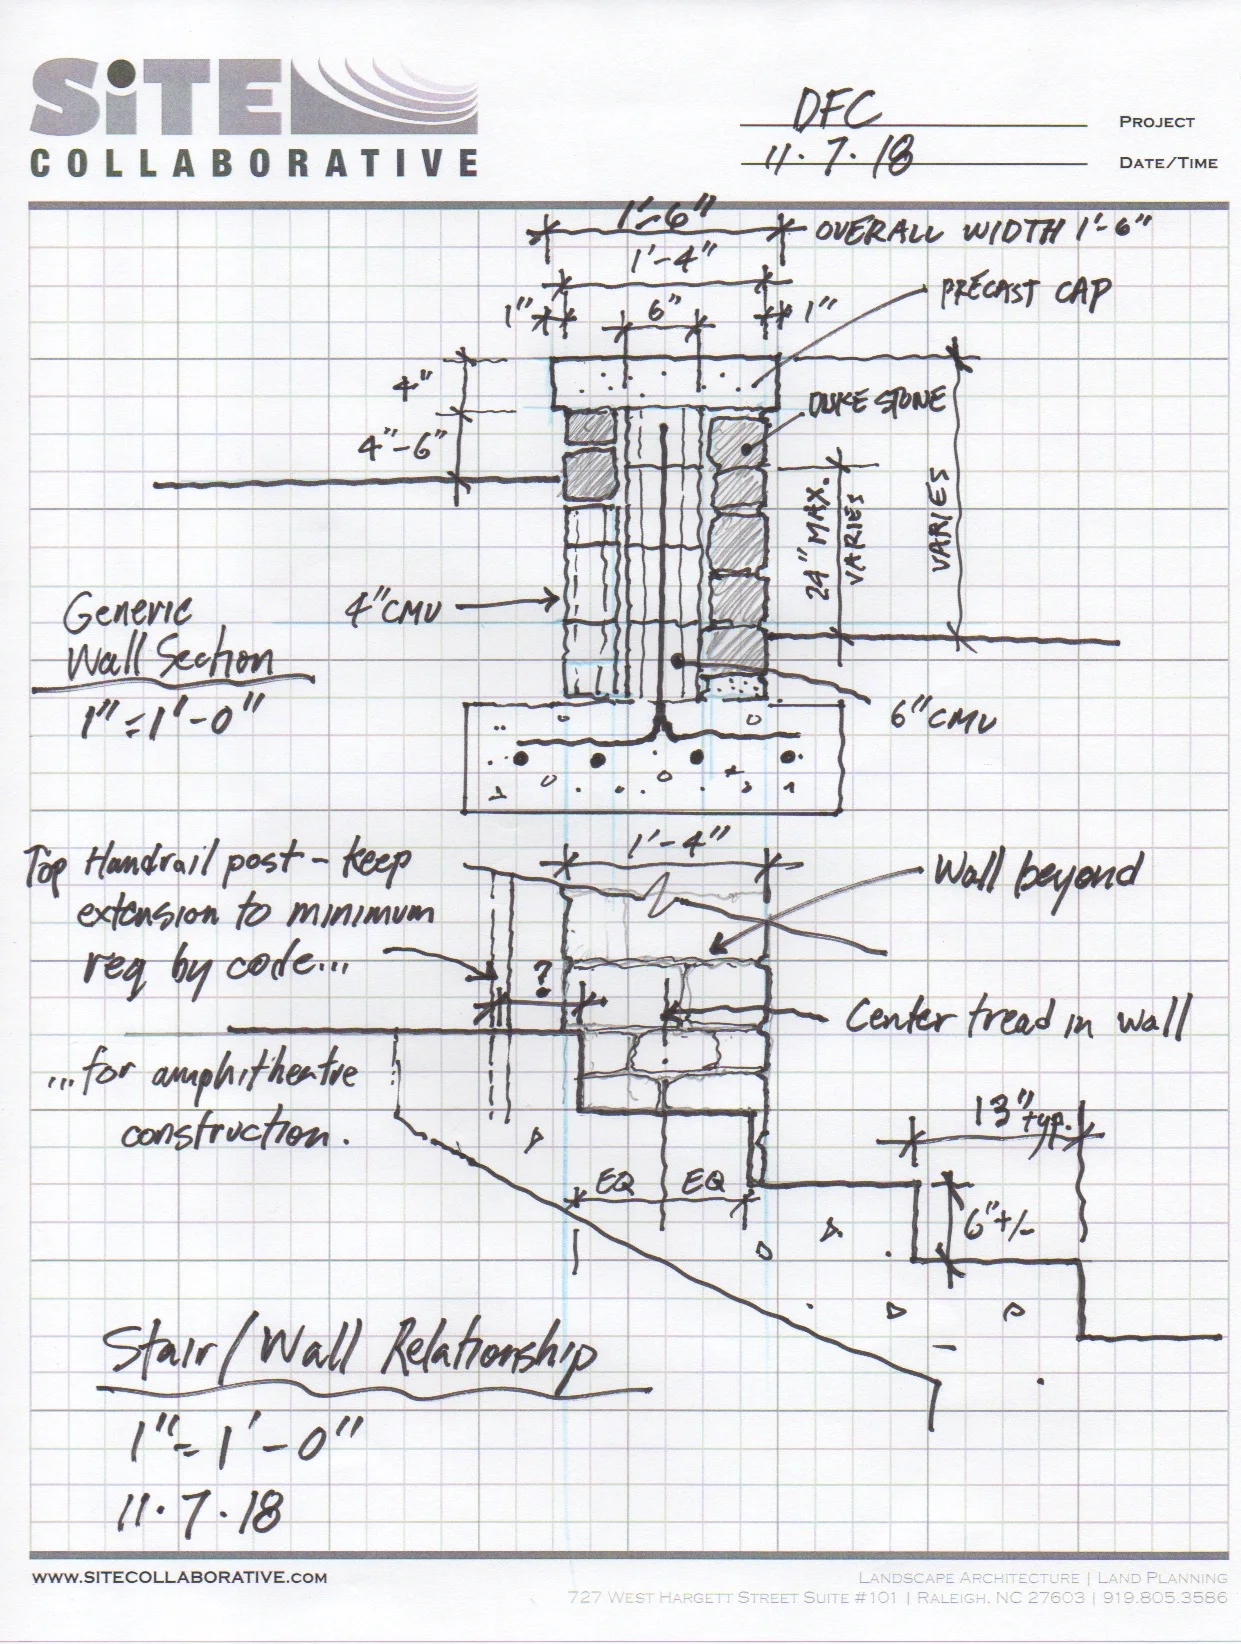 SiTE
COLLABORATIVE
DFC
PROJECT
11·7·18
DATE/TIME
1'-6"
OVERALL WIDTH 1'-6"
1'-4"
1"
6"
1"
PRECAST CAP
4"
DUKE STONE
4"-6"
24" MAX.
VARIES
VARIES
Generic
Wall Section
1"=1'-0"
4"CMU
6"CMU
1'-4"
Top Handrail post - keep
extension to minimum
req by code...
Wall beyond
?
Center tread in wall
...for amphitheatre
construction.
13" typ.
EQ
EQ
6"+/-
Stair/Wall Relationship
1"=1'-0"
11·7·18
WWW.SITECOLLABORATIVE.COM
LANDSCAPE ARCHITECTURE | LAND PLANNING
727 WEST HARGETT STREET SUITE #101 | RALEIGH, NC 27603 | 919.805.3586